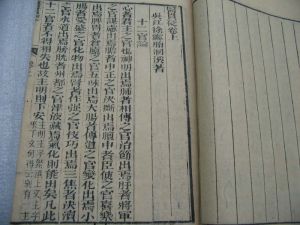 醫貫砭卷上
吳江徐靈胎洄溪著
十二官論
心者君主之官也神明出焉肺者相傳之官治節出焉肝者將軍
之官謀慮出焉膽者中正之官決斷出焉膻中者臣使之官喜樂
出焉脾胃者倉廩之官五味出焉大腸者傳道之官變化出焉小
腸者受盛之官化物出焉腎者作强之官伎巧出焉三焦者決瀆
之官水道出焉膀胱者州都之官津液藏焉氣化則能出矣凡此
十二官者不得相失也故主明則下安